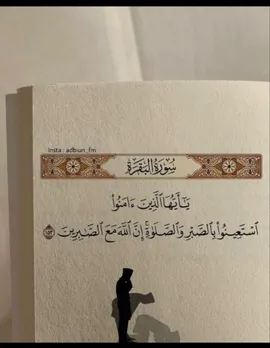 Insta : adbun_fm
سُورَةُ البَقَرَةِ
يَٰٓأَيُّهَا ٱلَّذِينَ ءَامَنُواْ
ٱسْتَعِينُواْ بِٱلصَّبْرِ وَٱلصَّلَوٰةِۚ إِنَّ ٱللَّهَ مَعَ ٱلصَّٰبِرِينَ ١٥٣